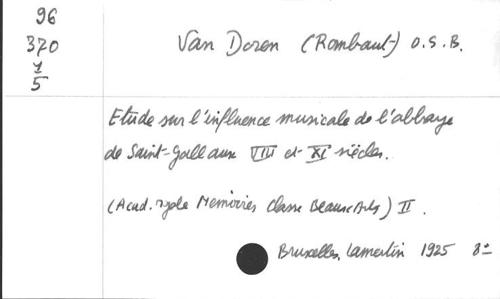 96
370
1
5
Van Doren (Rombaut) O.S.B.
Etude sur l'influence musicale de l'abbaye
de Saint-Gall aux VIII et XI siècles.
(Acad. royale Mémoires Classe Beaux Arts) II.
Bruxelles, Lamertin 1925 8°